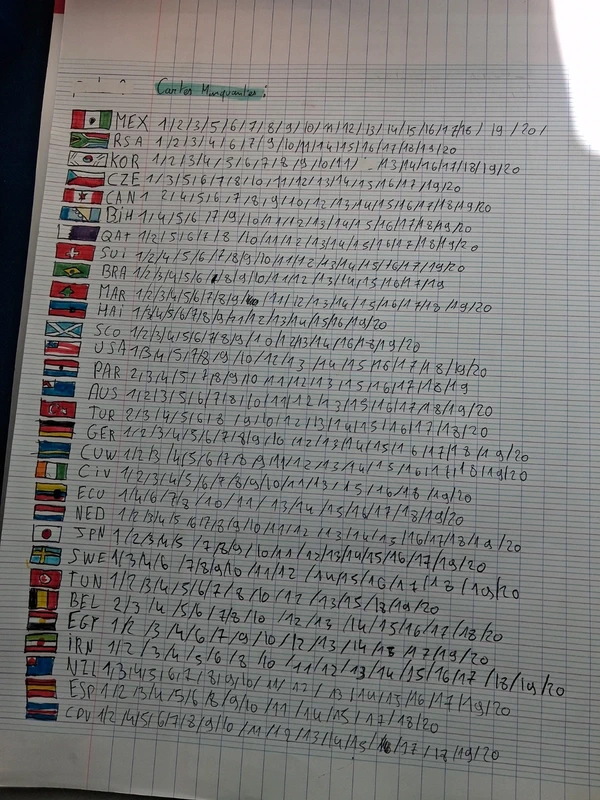 Cartes Manquantes :
MEX 1/2/3/5/6/7/8/9/10/11/12/13/14/15/16/17/18/19/20/
RSA 1/2/3/4/5/6/7/9/10/11/14/15/16/17/18/19/20
KOR 1/2/3/4/5/6/7/8/9/10/11/ 13/14/16/17/18/19/20
CZE 1/3/4/5/6/7/8/10/11/12/13/14/15/16/17/19/20
CAN 1 2/4/5/6/7/8/9/10/12/13/14/15/16/17/18/19/20
BIH 1/4/5/6 7/9/10/11/12/13/14/15/16/17/18/19/20
QAT 1/2/5/6/7/8 /10/11/12/13/14/15/16/17/18/19/20
SUI 1/2/4/5/6/7/8/9/10/11/12/13/14/15/16/17/19/20
BRA 1/2/3/4/5/6/8/9/10/11/12/13/14/15/16/17/19
MAR 1/2/3/4/5/6/7/8/9/ /11/12/13/14/15/16/17/18/19/20
HAI 1/3/4/5/6/7/8/9/11/12/13/14/15/16/19/20
SCO 1/2/3/4/5/6/7/8/9/10/12/13/14/16/18/19/20
USA 1/3/4/5/7/8/9/10/12/13/14/15/16/17/18/19/20
PAR 2/3/4/5/7/8/9/10/11/12/13/15/16/17/18/19
AUS 1/2/3/4/5/6/7/8/10/11/12/13/15/16/17/18/19/20
TUR 2/3/4/5/6/8/9/10/11/12/13/14/15/16/17/18/20
GER 1/2/3/4/5/6/7/8/9/10/12/13/14/15/16/17/18/19/20
CUW 1/2/3/4/5/6/7/8/9/11/12/13/14/15/16/17/18/19/20
CIV 1/2/3/4/5/6/7/8/9/10/11/13/15/16/18/19/20
ECU 1/4/6/7/8/10/11/13/14/15/16/17/18/19/20
NED 1/2/3/4/5/6/7/8/9/10/11/12/13/14/15/16/17/18/19/20
JPN 1/2/3/4/5/7/8/9/10/11/12/13/14/15/16/17/19/20
SWE 1/3/4/6/7/8/9/10/11/12/14/15/16/17/18/19/20
TUN 1/2/3/4/5/6/7/8/10/12/13/15/18/19/20
BEL 2/3/4/5/6/7/8/10/12/13/14/15/16/17/18/20
EGY 1/2/3/4/6/7/9/10/12/13/14/18/17/19/20
IRN 1/2/3/4/5/6/8/10/11/12/13/14/15/16/17/18/19/20
NZL 1/3/4/5/6/7/8/9/10/11/12/13/14/15/16/17/19/20
ESP 1/2/3/4/5/6/8/9/10/11/14/15/17/18/20
CPV 1/2/4/5/6/7/8/9/10/11/12/13/14/15/16/17/18/19/20